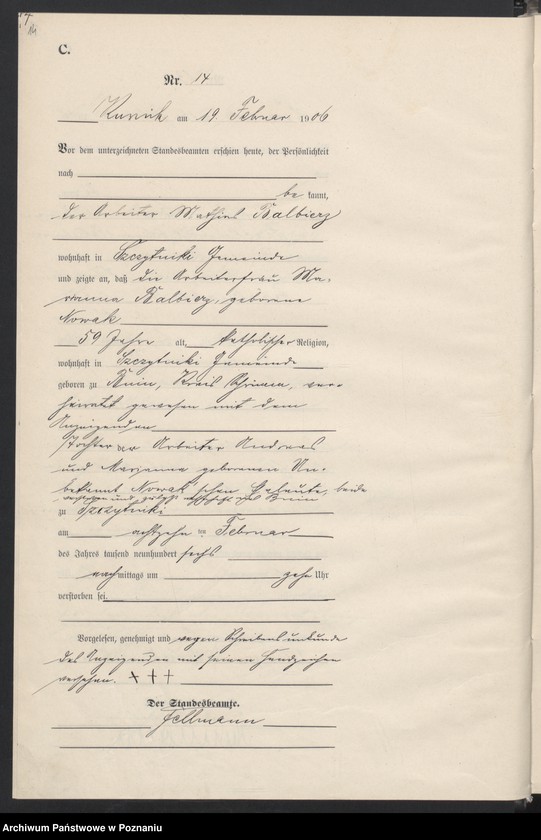 C.
Nr. 14
Kurnik am 19 Februar 1906
Vor dem unterzeichneten Standesbeamten erschien heute, der Persönlichkeit
nach
be kannt,
der Arbeiter Mathias Balbierz
wohnhaft in Szczytniki Gemeinde
und zeigte an, daß die Arbeiterfrau Ma-
rianna Balbierz, geborene
Nowak
59 Jahre alt, katholischer Religion,
wohnhaft in Szczytniki Gemeinde
geboren zu Bnin, Kreis Schrimm, ver-
heiratet gewesen mit dem
Anzeigenden
Tochter der Arbeiter Andreas
und Marjanna geborenen Un-
bekannt Nowak'schen Eheleute, beide
verstorben und zuletzt wohnhaft in Bnin
zu Szczytniki
am achtzehn ten Februar
des Jahres tausend neunhundert sechs
nachmittags um zehn Uhr
verstorben sei.
Vorgelesen, genehmigt und wegen Schreibensunkunde
des Anzeigenden mit seinem Handzeichen
versehen. + + +
Der Standesbeamte.
Fellmann
Archiwum Państwowe w Poznaniu